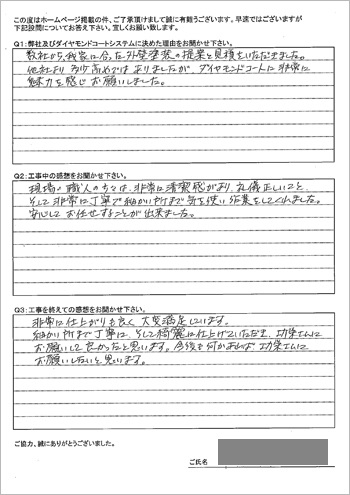 この度はホームページ掲載の件、ご了承頂けまして誠に有難うございます。早速ではございますが
下記設問についてお答え下さい。宜しくお願い致します。
Q1:弊社及びダイヤモンドコートシステムに決めた理由をお聞かせ下さい。
数社から、我家に合った外壁塗装の提案と見積をいただきました。
他社より多少高めではありましたが、ダイヤモンドコートに非常に
魅力を感じ、お願いしました。
Q2:工事中の感想をお聞かせ下さい。
現場の職人の方々は、非常に清潔感があり、礼儀正しいこと、
そして非常に丁寧で細かい所まで気を使い作業をしてくれました。
安心してお任せすることが出来ました。
Q3:工事を終えての感想をお聞かせ下さい。
非常に仕上がりも良く、大変満足しています。
細かい所まで丁寧に、そして綺麗に仕上げていただき、功栄さんに
お願いして良かったと思います。今後も何かあれば、功栄さんに
お願いしたいと思います。
ご協力、誠にありがとうございました。
ご氏名